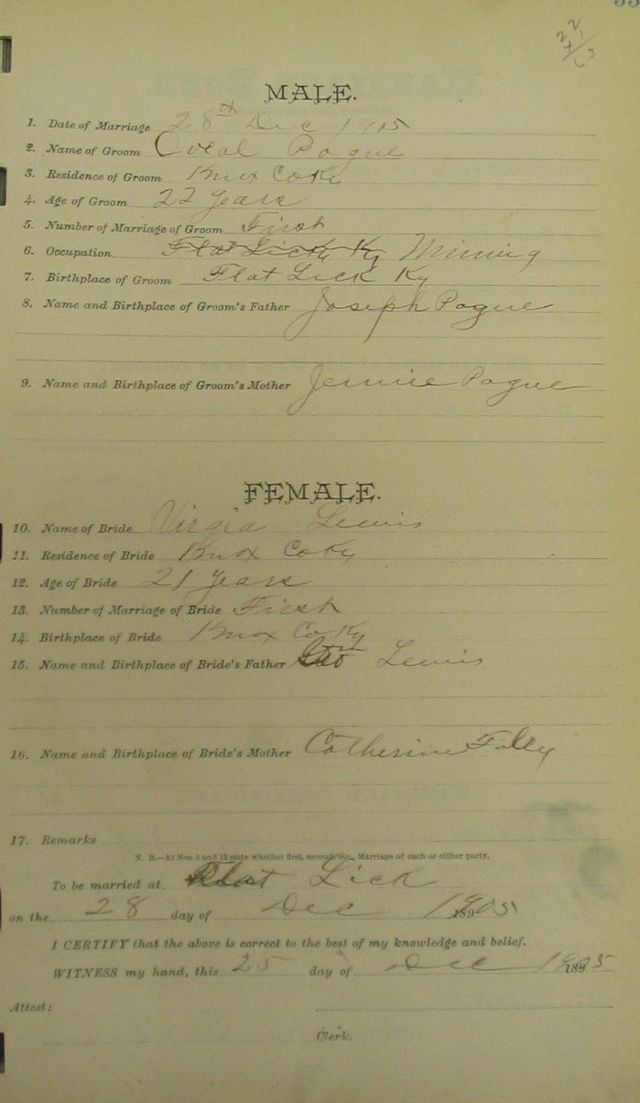 MALE.
1. Date of Marriage 28th Dec 1905
2. Name of Groom Oveal Pogue
3. Residence of Groom Knox Co Ky
4. Age of Groom 22 years
5. Number of Marriage of Groom First
6. Occupation Flat Lick Ky Mining
7. Birthplace of Groom Flat Lick Ky
8. Name and Birthplace of Groom's Father Joseph Pogue
9. Name and Birthplace of Groom's Mother Jennie Pogue
FEMALE.
10. Name of Bride Virgia Lewis
11. Residence of Bride Knox Co Ky
12. Age of Bride 21 years
13. Number of Marriage of Bride First
14. Birthplace of Bride Knox Co Ky
15. Name and Birthplace of Bride's Father Lewis
16. Name and Birthplace of Bride's Mother Catherine
17. Remarks
N. B.—At Nos. 5 and 13 state whether first, second, etc., Marriage of each or either party.
To be married at Flat Lick
on the 28 day of Dec 1905
I CERTIFY that the above is correct to the best of my knowledge and belief.
WITNESS my hand, this 25 day of Dec 1905
Attest:
Clerk.